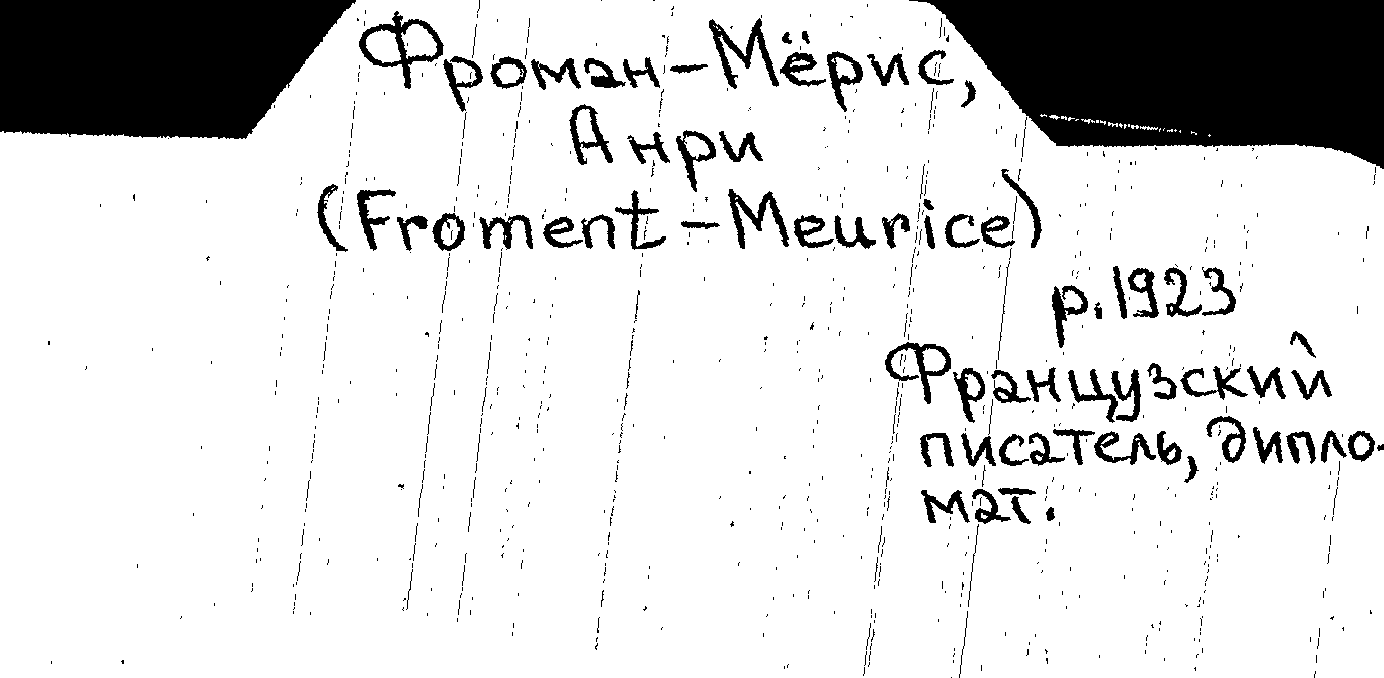 Фроман-Мёрис,
Анри
(Froment-Meurice)
р.1923
Французский
писатель, дипло-
мат.